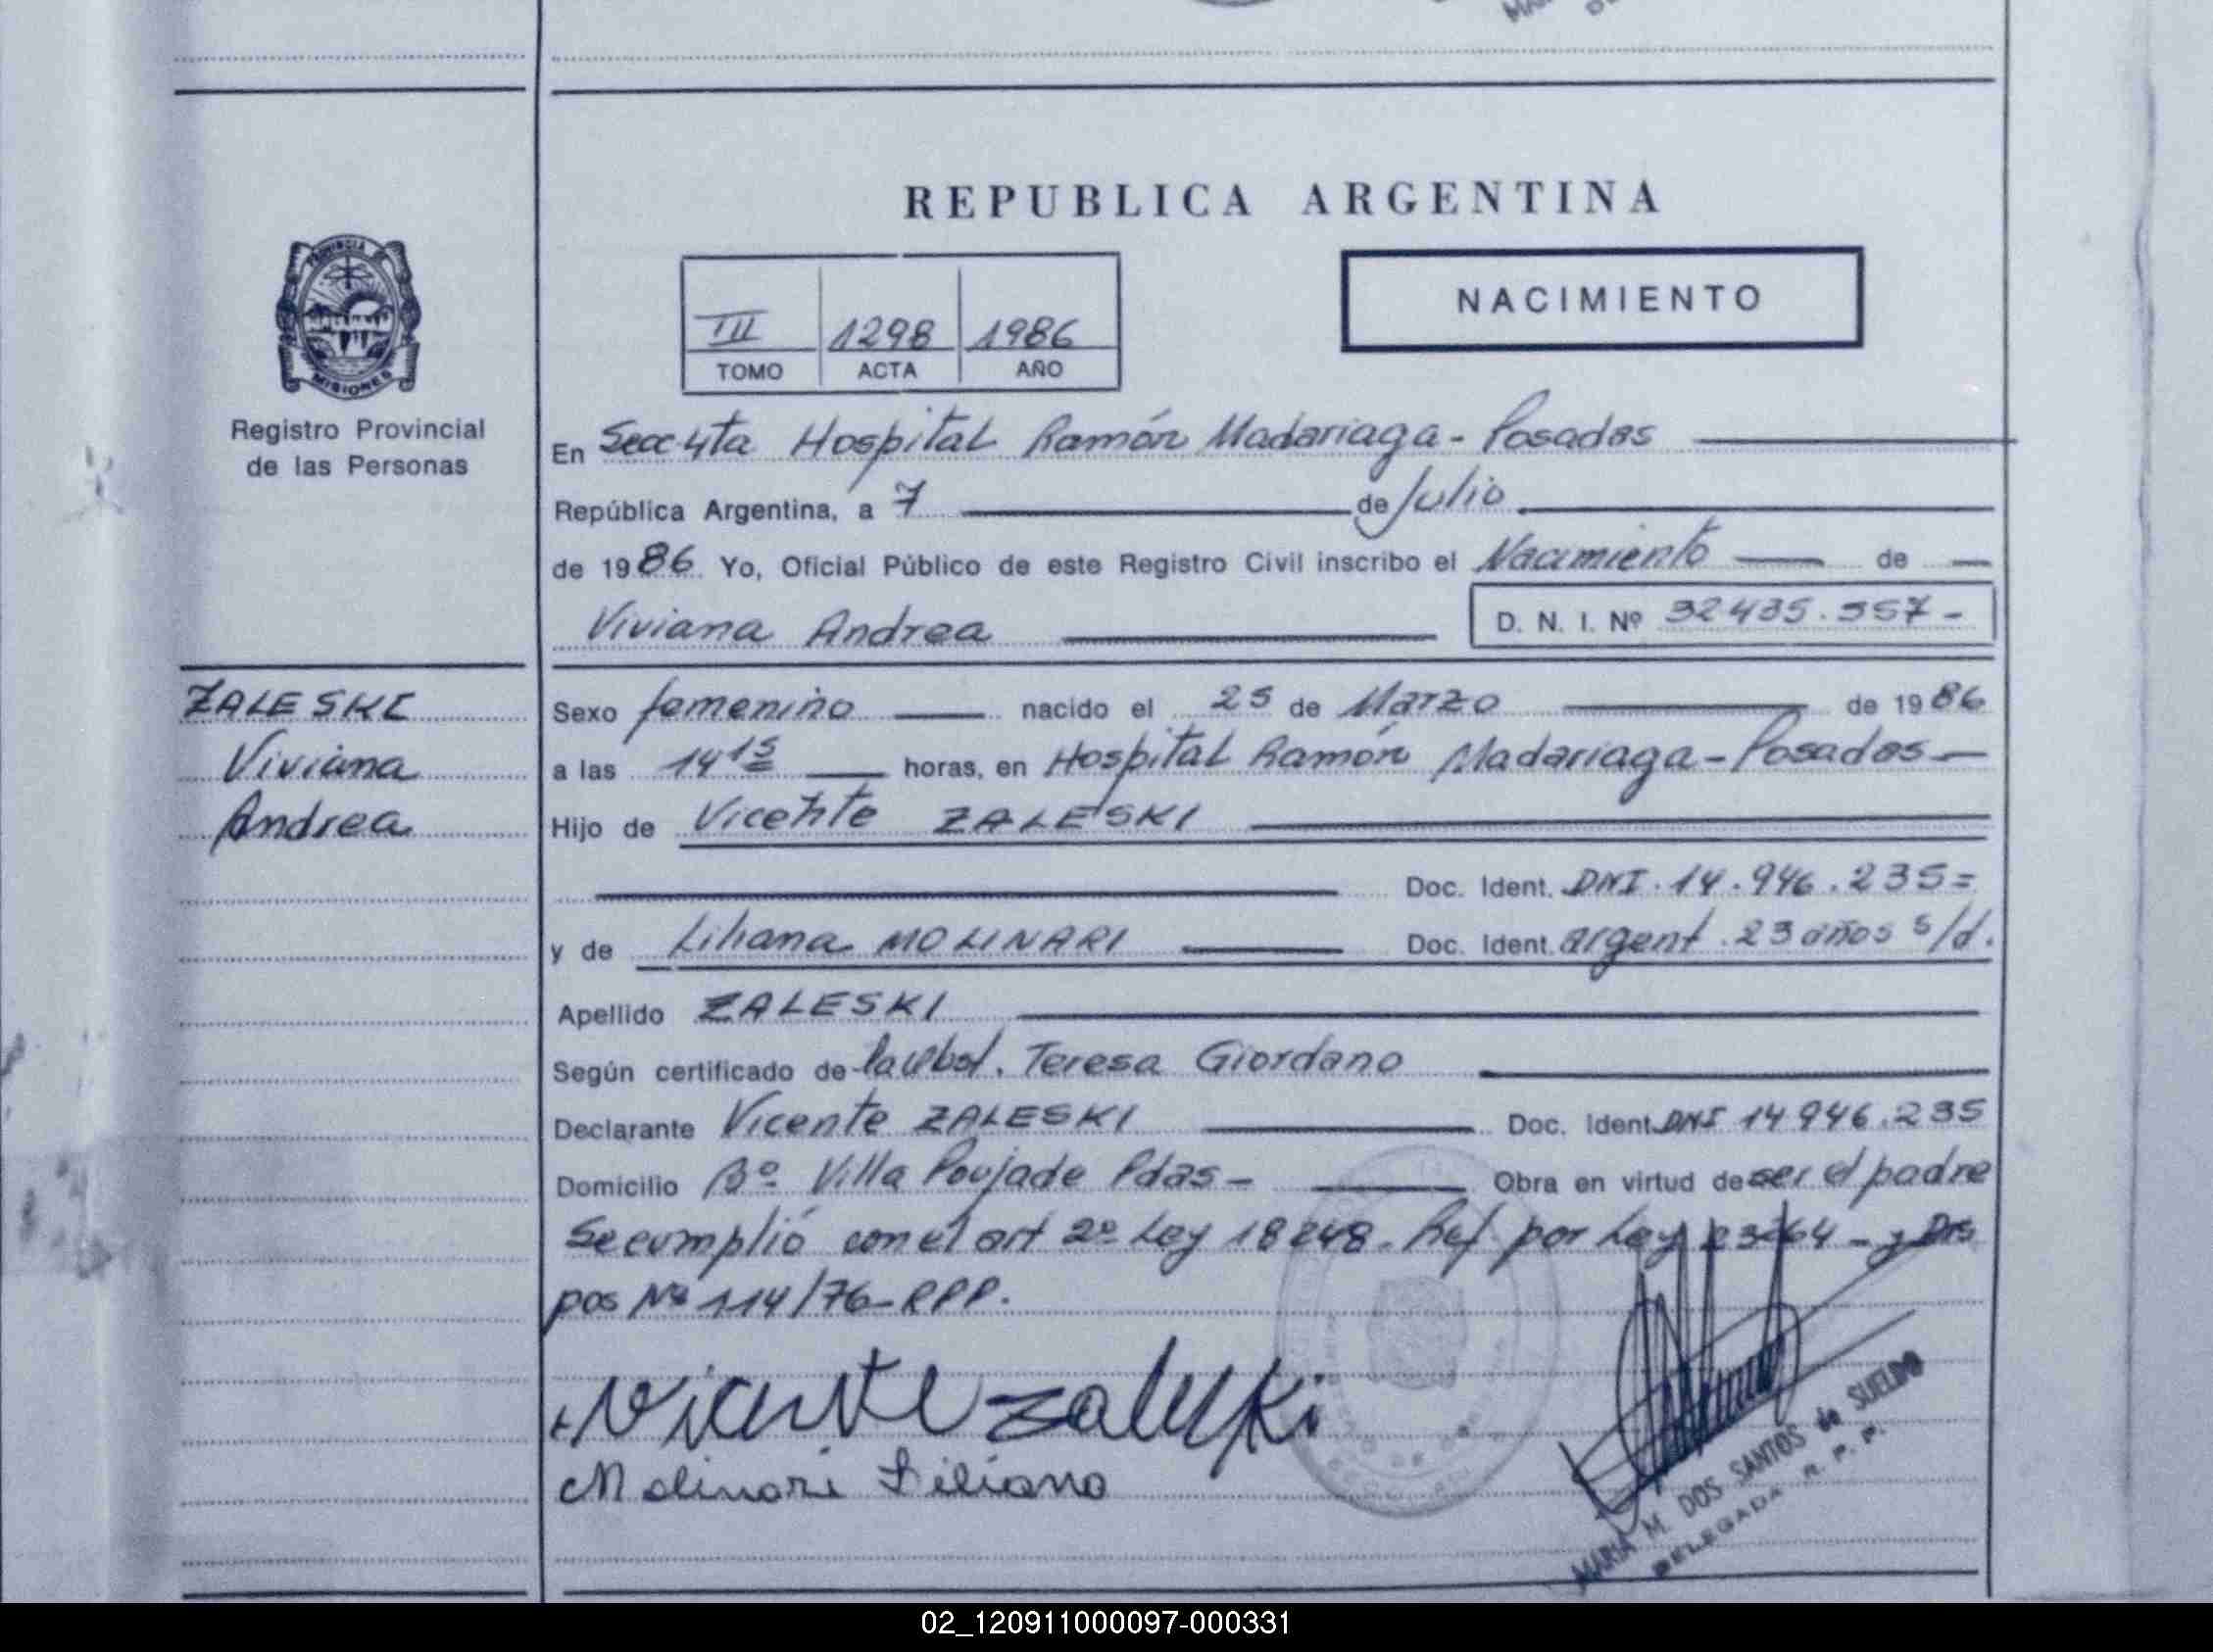 REPUBLICA ARGENTINA
PROVINCIA DE
MISIONES
Registro Provincial
de las Personas
III 1298 1986
TOMO ACTA AÑO
NACIMIENTO
En Secc 4ta Hospital Ramón Madariaga - Posadas
República Argentina, a 7 de Julio
de 1986 Yo, Oficial Público de este Registro Civil inscribo el Nacimiento de
Viviana Andrea D. N. I. Nº 32435.357-
ZALESKI
Viviana
Andrea
Sexo femenino nacido el 25 de Marzo de 1986
a las 14 15 horas, en Hospital Ramón Madariaga - Posadas
Hijo de Vicente ZALESKI
Doc. Ident. DNI. 14.946.235=
y de Liliana MOLINARI Doc. Ident. argent. 23 años s/d.
Apellido ZALESKI
Según certificado de Teresa Giordano
Declarante Vicente ZALESKI Doc. Ident. DNI 14946.235
Domicilio Bº Villa Poujade Pdas - Obra en virtud de ser el padre
Se cumplió con el art 2º Ley 18248. Ref por Ley 23264 - y Dis
pos Nº 114/76-RPP.
Vicente Zaleski
Molinari Liliana
MARIA M. DOS SANTOS de SUELDO
DELEGADA R. P. P.
02_120911000097-000331